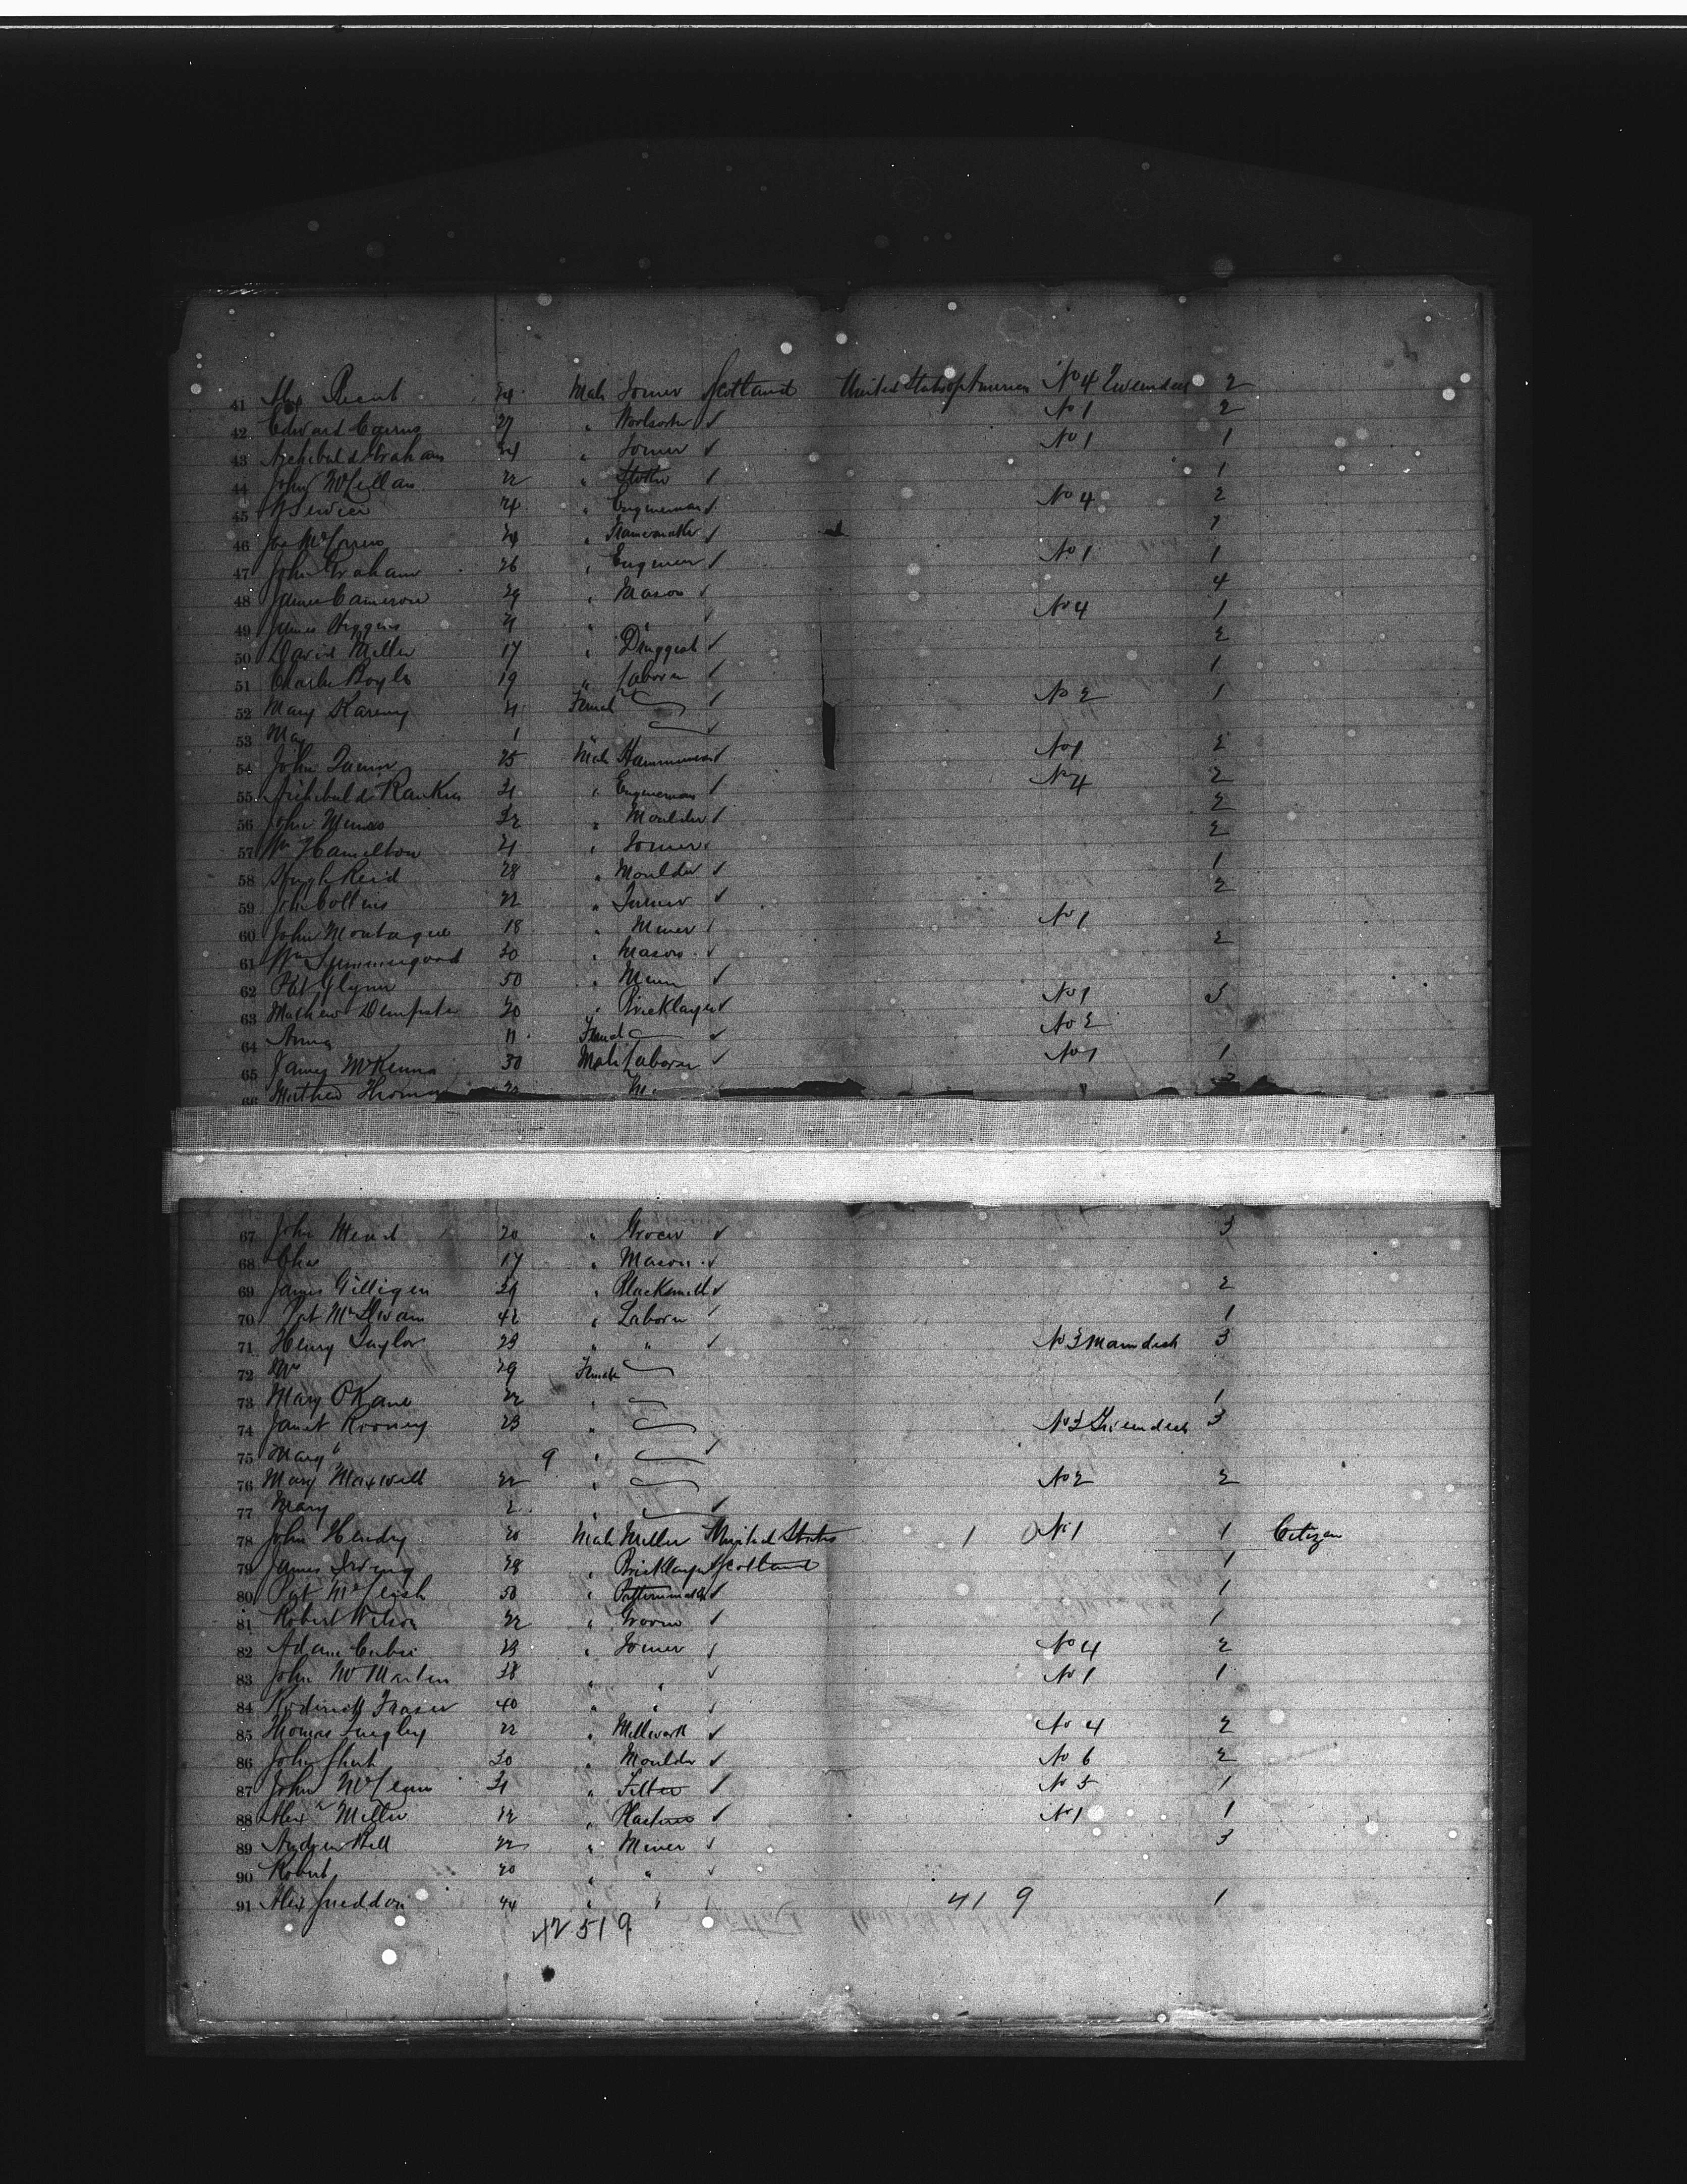 41 Alex 24 Male Joiner Scotland United States of America No 4 Tweendeck 2
42 Edward Cairns 27 " Woolsorter ✓ No 1 2
43 Archibald Graham 24 " Joiner ✓ No 1 1
44 John McLellan 22 " ✓ 1
45 24 " Engineman ✓ No 4 2
46 Jas 24 " Framemaker ✓ 1
47 John Graham 26 " Engineer ✓ No 1 1
48 James Cameron 29 " Mason ✓ 4
49 James Higgins 21 " " ✓ No 4 1
50 David Miller 17 " Druggist ✓ 2
51 Charles Boyle 19 " Laborer ✓ 1
52 Mary 21 Female ✓ No 2 1
53 May 1 " ✓
54 John Quinn 25 Male Hammerman ✓ No 1 2
55 Archibald Rankin 21 " Engineman ✓ No 4 2
56 John 32 " Moulder ✓ 2
57 Wm Hamilton 21 " Joiner ✓ 2
58 Hugh Reid 28 " Moulder ✓ 1
59 John Collins 22 " Turner ✓ 2
60 John Montague 18 " Miner ✓ No 1
61 Wm 30 " Mason ✓ 2
62 Pat Glynn 50 " Miner ✓
63 Mathew Dempster 30 " Bricklayer ✓ No 1 3
64 Anna 11 Female ✓ No 2
65 James McKenna 30 Male Laborer ✓ No 1 1
66 Thomas 20
67 John 20 " Grocer ✓ 3
68 Chas 17 " Mason ✓
69 James Gilligan 29 " Blacksmith ✓ 2
70 Pat 42 " Laborer ✓ 1
71 Henry Taylor 23 " " ✓ No 3 Maindeck 3
72 Mrs 29 Female
73 Mary O'Kane 22 " 1
74 Janet Rooney 23 " No 3 Tweendeck 3
75 Mary " 9 " ✓
76 Mary Maxwell 22 " No 2 2
77 Mary 2 " ✓
78 John Hendry 20 Male Miller United States 1 0 No 1 1 Citizen
79 James Irving 28 " Bricklayer Scotland 1
80 Pat McLeish 50 " Patternmaker ✓ 1
81 Robert Wilson 22 " Groom ✓ 1
82 Adam 23 " Joiner ✓ No 4 2
83 John McMartin 38 " " ✓ No 1 1
84 Roderick Fraser 40 " " ✓
85 Thomas 22 " Millwork ✓ No 4 2
86 John 30 " Moulder ✓ No 6 2
87 John McLean 21 " Fitter ✓ No 5 1
88 Alex Miller 22 " ✓ No 1 1
89 Andrew Bell 22 " Miner ✓ 3
90 Robert 20 " " ✓
91 Alex Sneddon 44 " " ✓ 41 9 1
42 51 9